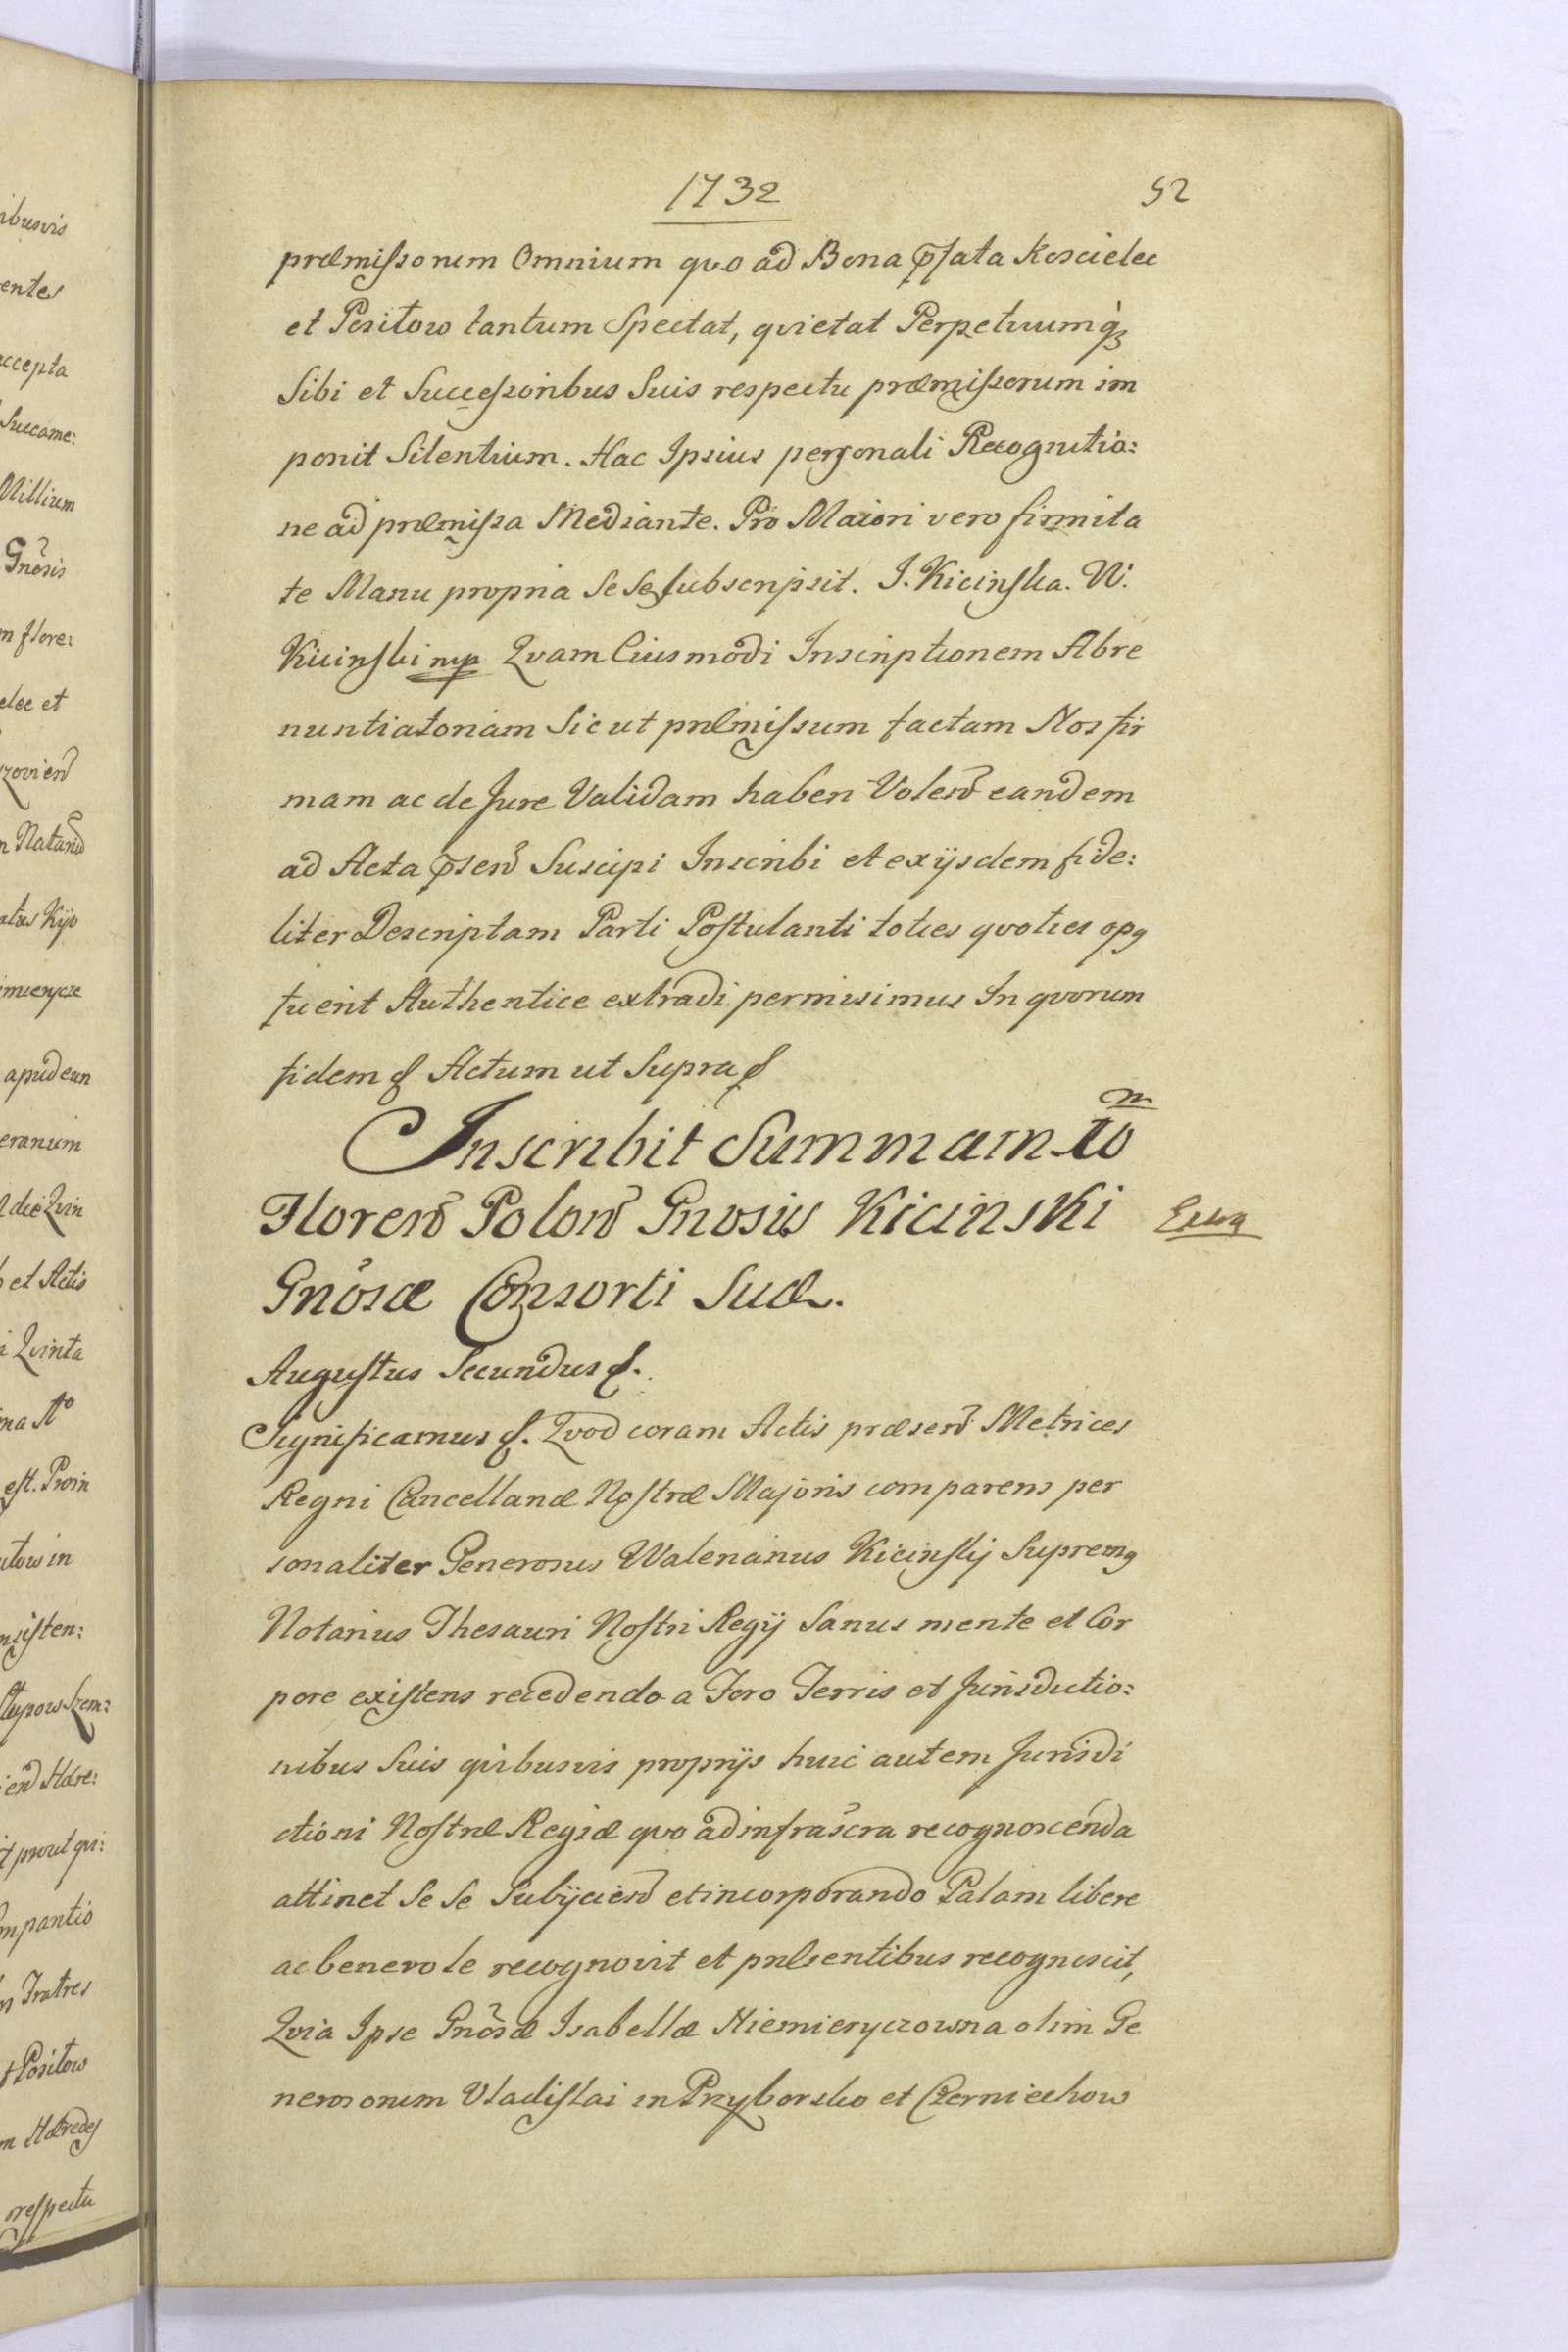 1732 52
præmissorum Omnium quo ad Bona pfata Koscielec
et Positow tantum Spectat, qvietat Perpetuumq̀ꝫ
Sibi et Successoribus Suis respectu præmissorum im
ponit Silentium. Hac Ipsius personali Recognitio:
ne ad præmissa Mediante. Pro Maiori vero firmita
te Manu propria Se Se subscripsit. J. Kicinska. W.
Kicinski mp Qvam Eiusmodi Inscriptionem Abre
nuntiatoriam Sic ut præmissum factam Nos fir
mam ac de Jure Validam haberi Volen̄ eandem
ad Acta psen̄ Suscipi Inscribi et ex ijsdem fide:
liter Descriptam Parti Postulanti toties qvoties opꝯ
fuerit Authentice extradi permisimus In qvorum
fidem & Actum ut Supra &
m
Inscribit Summam to
Floren̄ Polon̄ Gnosus Kicinski
Gnosæ Consorti Suæ.
Augustus Secundus &.
Significamus &. Qvod coram Actis præsen̄ Metrices
Regni Cancellariæ Nostræ Majoris comparens per
sonaliter Generosus Walerianus Kicinskij Supremꝯ
Notarius Thesauri Nostri Regij Sanus mente et Cor
pore existens recedendo a Foro Terris et Jurisdictio:
nibus Suis qvibusvis proprijs huic autem Jurisdi
ctioni Nostræ Regiæ qvo ad infrascra recognoscenda
attinet Se Se Subijcien̄ et incorporando Palam libere
ac benevole recognovit et præsentibus recognoscit,
Qvia Ipse Gnosæ Isabellæ Niemieryczowna olim Ge
nerosorum Vladislai in Przyborsko et Czerniechow
ibusvis
entes
accepta
Succame:
Millium
Gnosis
m flore:
elec et
zovien̄
n Natan̄
atus Kijo
mierycze
apud eun
eranum
die Qvin
et Actis
a Qvinta
ma Ao
est. Proin
utow in
nsisten:
ien̄ Hære:
t prout qvi:
mpantio
n Fratres
t Positow
m Hæredes
respectu